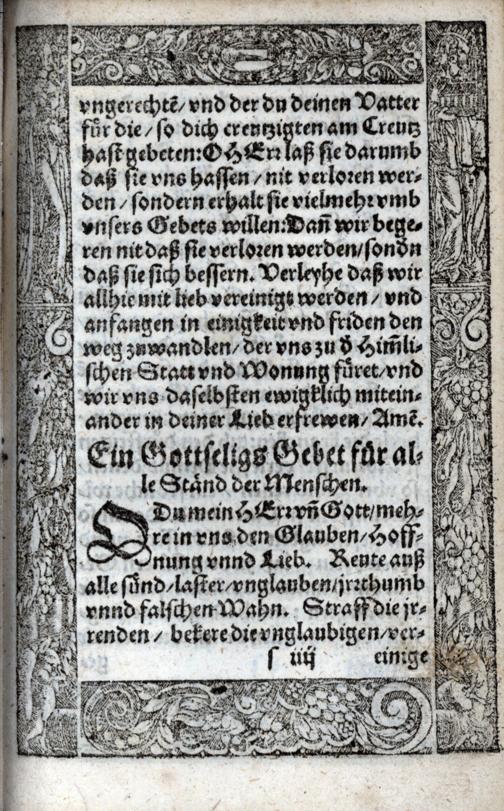 vngerechtē/ vnd der du deinen Vatter
für die/ so dich creutzigten am Creutz
hast gebeten: O HErr laß sie darumb
daß sie vns hassen/ nit verloren wer-
den/ sondern erhalt sie vielmehr vmb
vnsers Gebets willen: Dañ wir bege-
ren nit daß sie verloren werden/ sondn
daß sie sich bessern. Verleyhe daß wir
allhie mit lieb vereinigt werden/ vnd
anfangen in einigkeit vnd friden den
weg zuwandlen/ der vns zu d̄ Him̄li-
schen Statt vnd Wonung füret/ vnd
wir vns daselbsten ewigklich mitein-
ander in deiner Lieb erfrewen/ Amē.
Ein Gottseligs Gebet für al-
le Ständ der Menschen.
O Du mein HErr vñ Gott/ meh-
re in vns den Glauben/ Hoff-
nung vnnd Lieb. Reute auß
alle sünd/ laster/ vnglauben/ jrrthumb
vnnd falschen Wahn. Straff die jr-
renden/ bekere die vnglaubigen/ ver-
s iiij einige